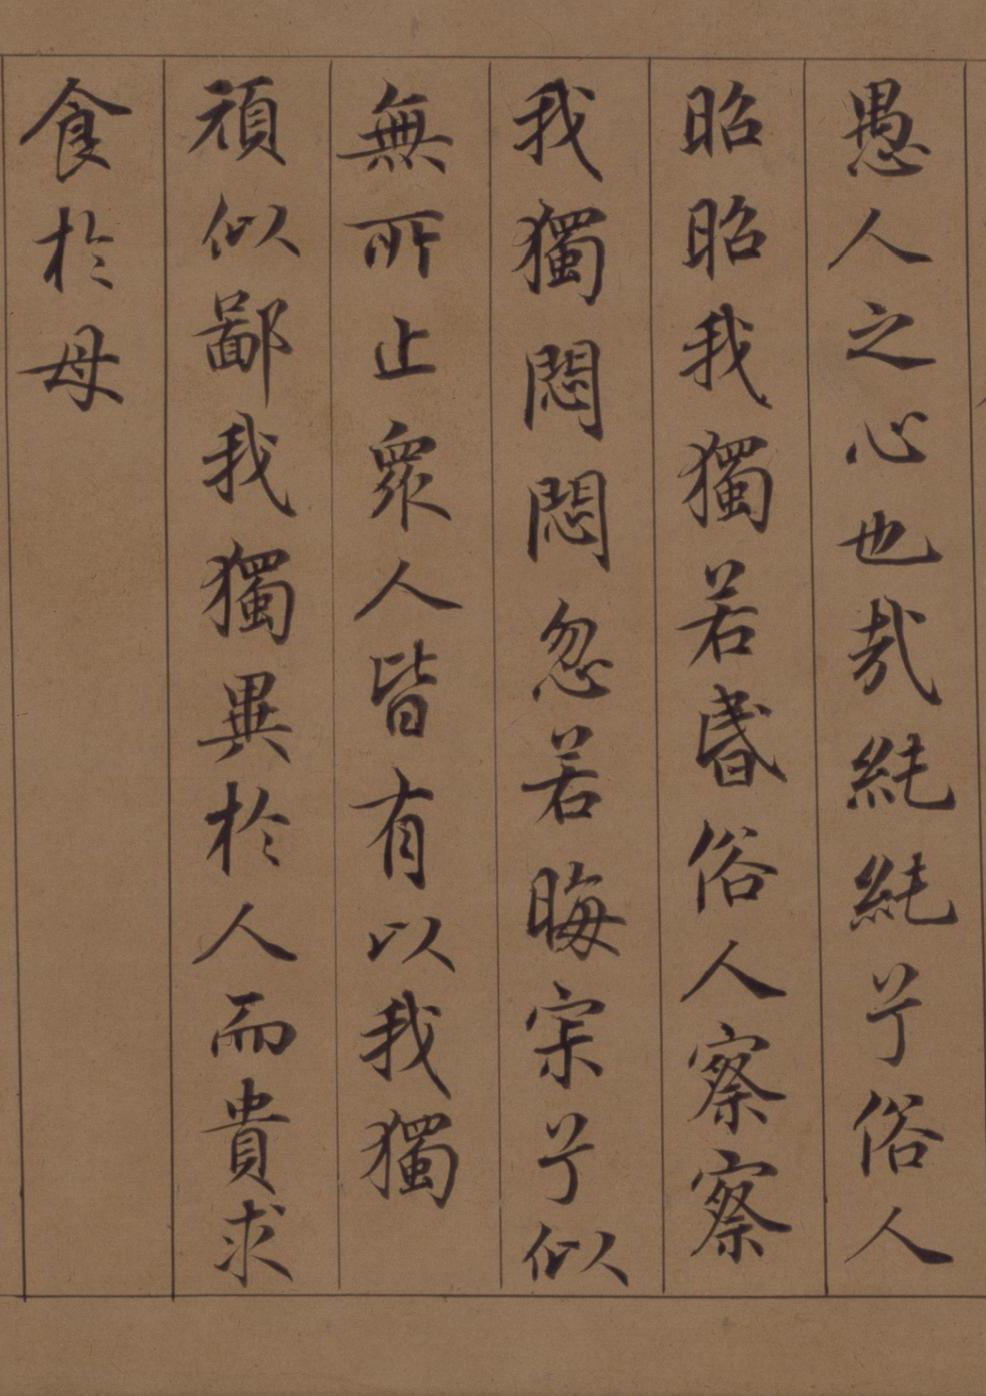 愚人之心也哉純純兮俗人
昭昭我獨若昏俗人察察
我獨悶悶忽若晦寂兮似
無所止衆人皆有以我獨
頑似鄙我獨異於人而貴求
食於母